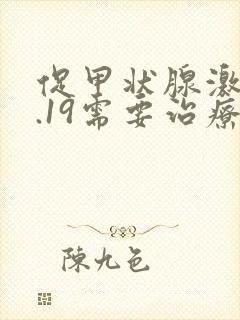 促甲状腺激
.19需要治療
陳九色